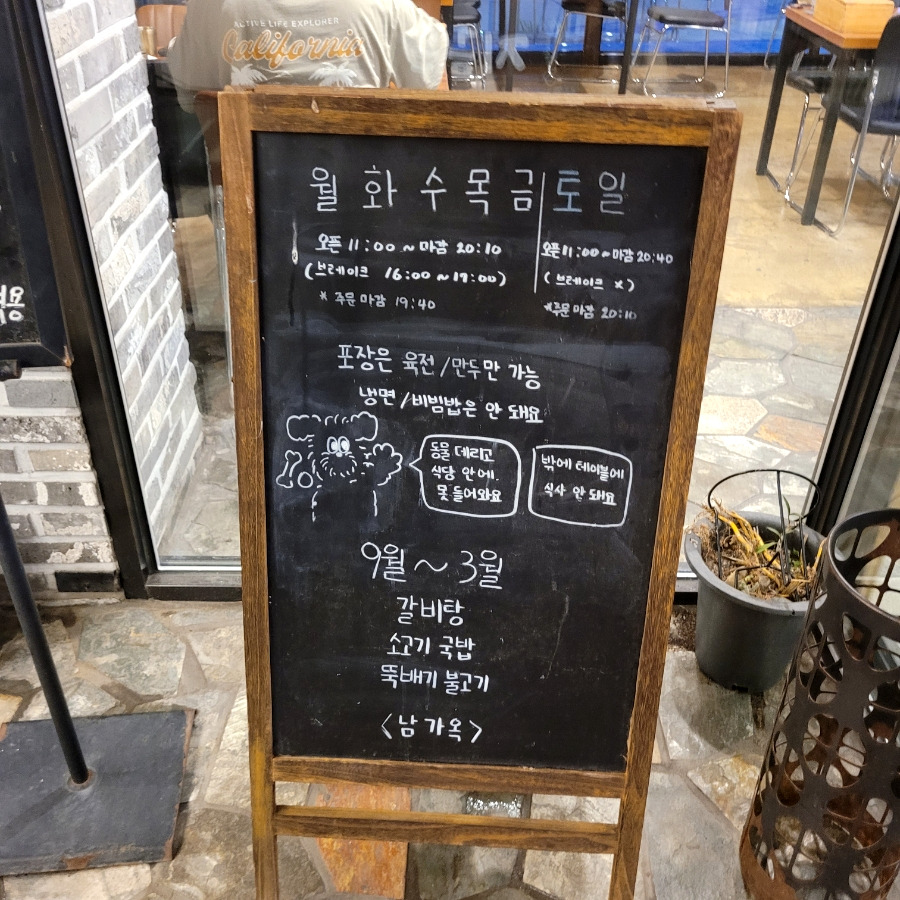 ACTIVE LIFE EXPLORER
California
월 화 수 목 금 토 일
오픈 11:00 ~ 마감 20:10
(브레이크 16:00 ~ 17:00)
* 주문 마감 19:40
오픈 11:00 ~ 마감 20:40
(브레이크 x)
*주문 마감 20:10
포장은 육전 / 만두만 가능
냉면 / 비빔밥은 안 돼요
동물 데리고
식당 안에.
못 들어와요
밖에 테이블에
식사 안 돼요
9월 ~ 3월
갈비탕
소고기 국밥
뚝배기 불고기
<남가옥>